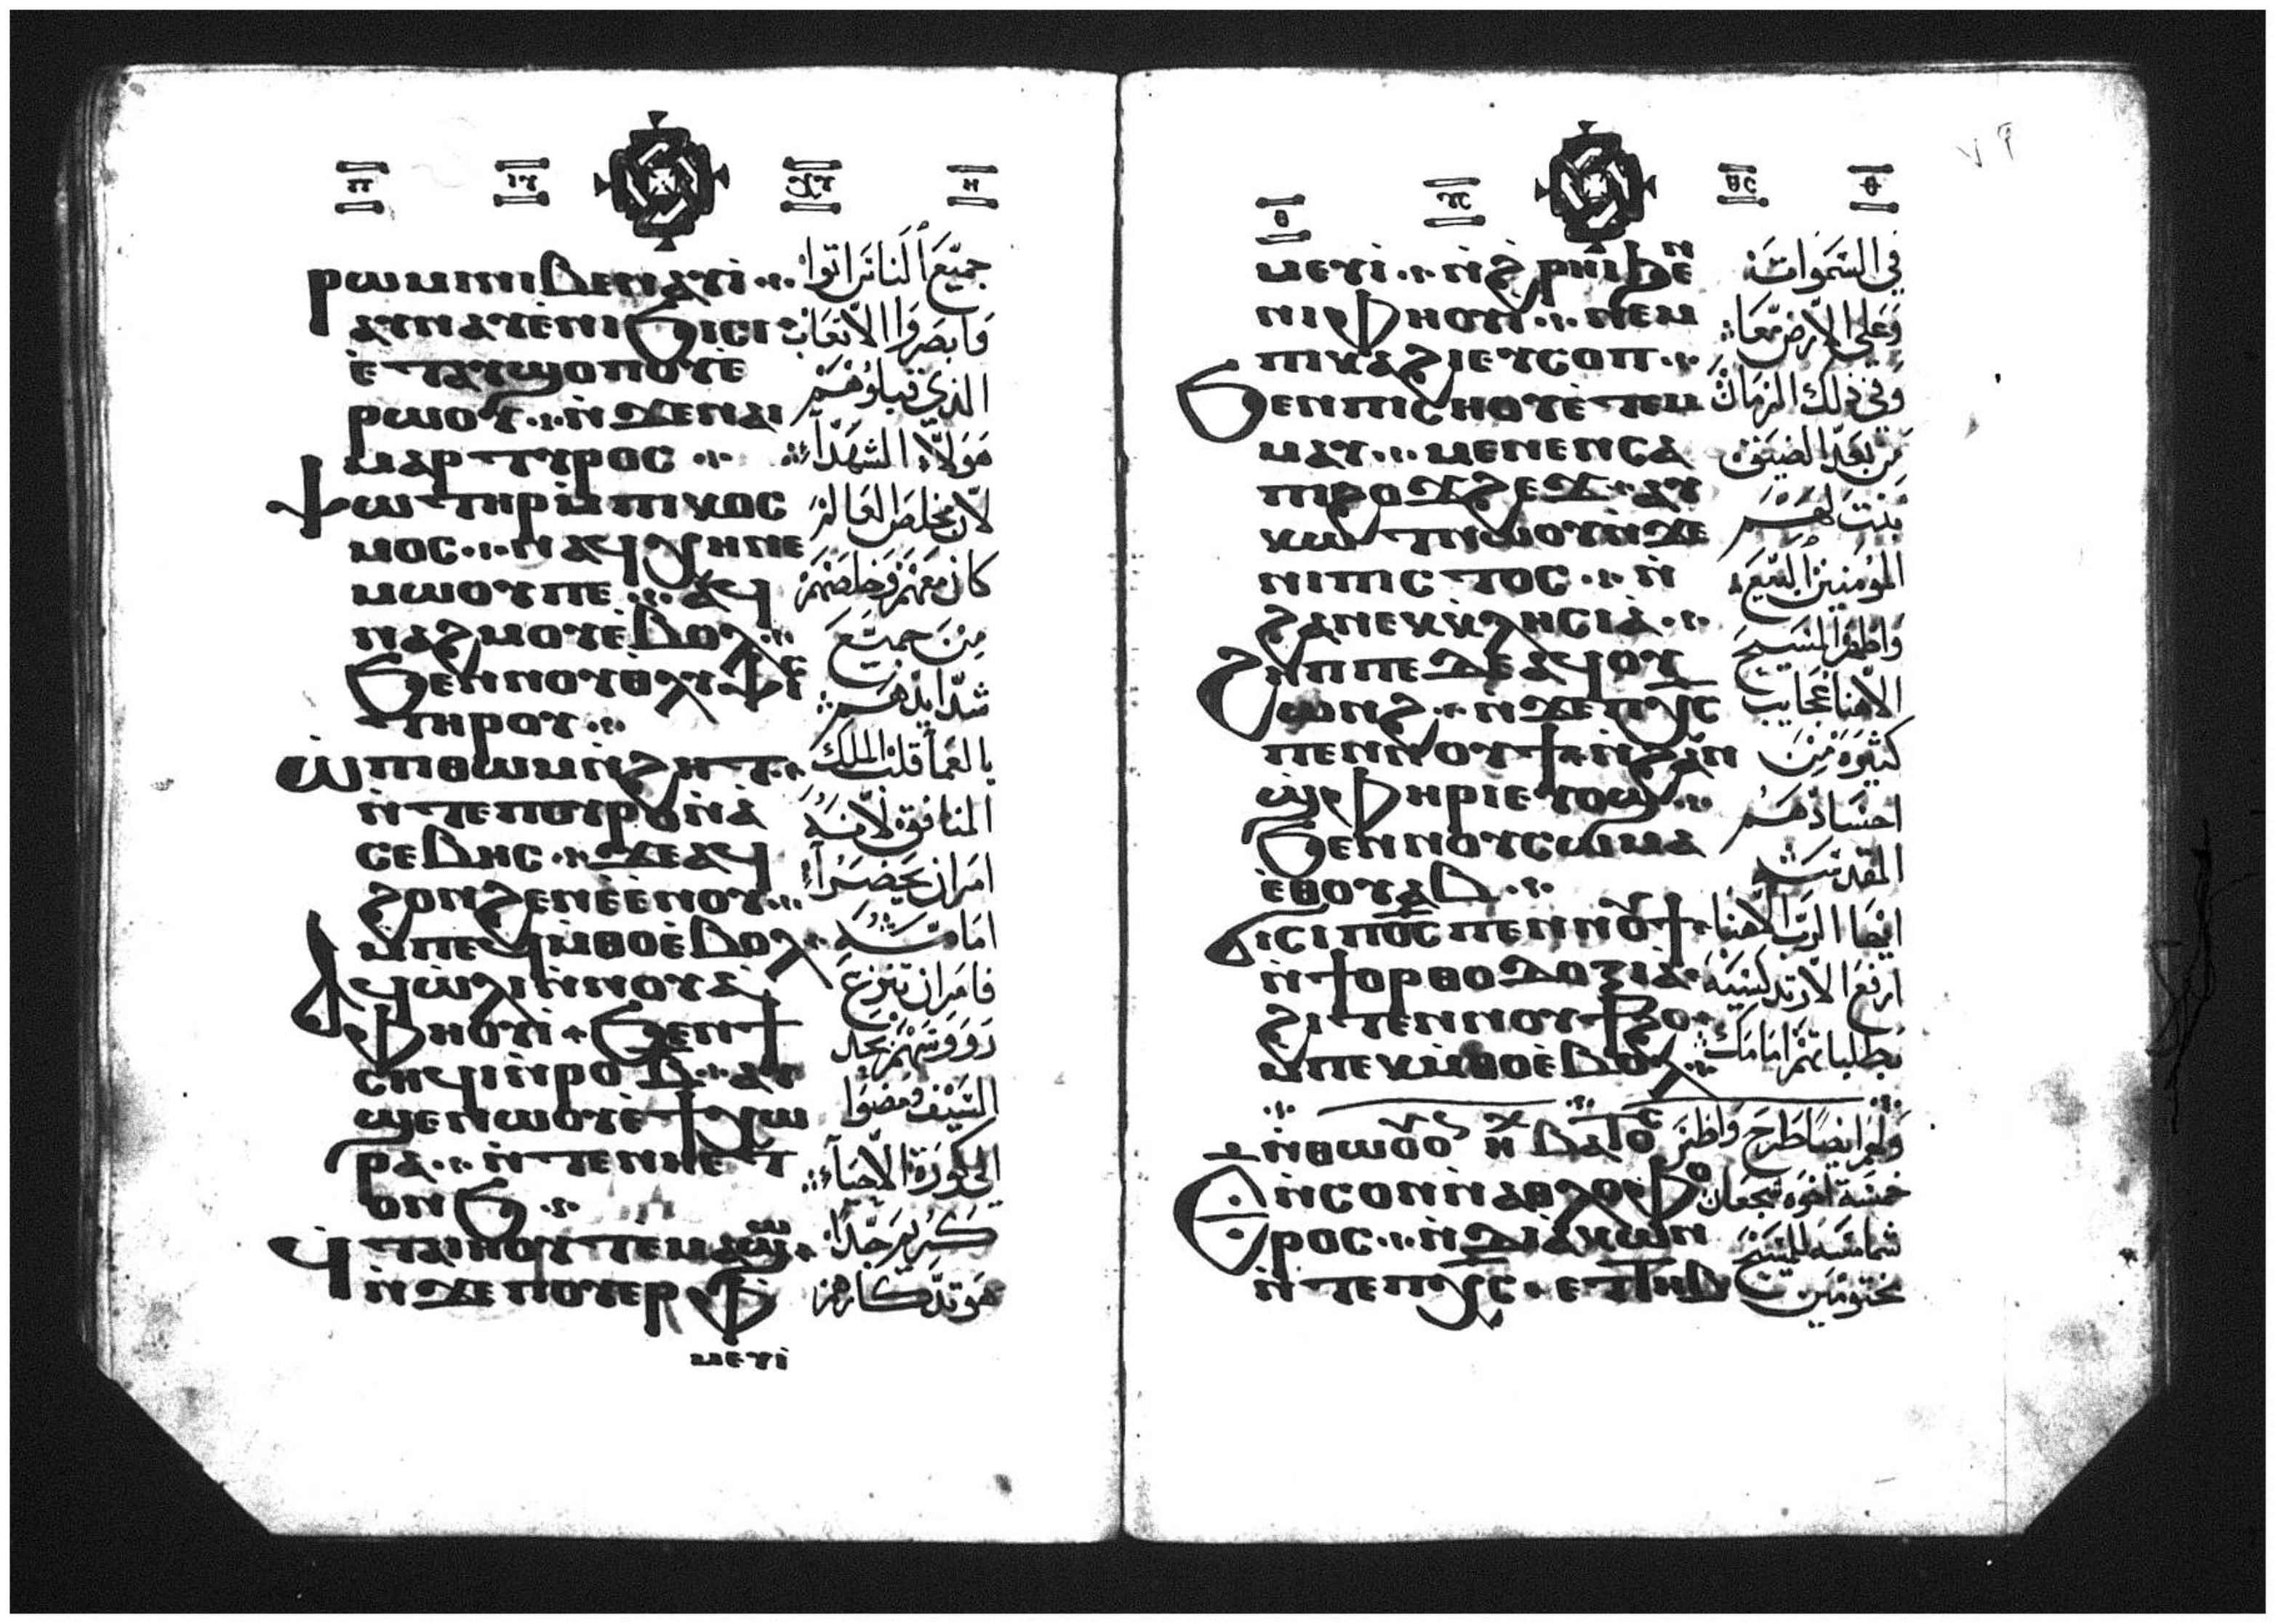 ⲣⲱⲙⲓⲛⲓⲃⲉⲛⲁⲩⲓ̀
ⲁⲩⲛⲁⲩⲉ̀ⲛⲓϧⲓⲥⲓ
ⲉ̀ⲧⲁⲩϣⲟⲡⲟⲩⲉ̀
ⲣⲱⲟⲩ ⲛ̀ϫⲉⲛⲁⲓ
ⲙⲁⲣⲧⲩⲣⲟⲥ
ⲯⲱⲧⲏⲣⲙ̀ⲡⲓⲕⲟⲥ
ⲙⲟⲥ ⲛⲁϥⲭⲏⲛⲉ
ⲙⲱⲟⲩⲡⲉ ⲁϥ
ⲛⲁϩⲙⲟⲩⲉ̀ⲃⲟⲗ
ϧⲉⲛⲛⲟⲩⲑⲗⲩⲯⲓⲥ
ⲧⲏⲣⲟⲩ
ⲱ̀ⲡⲓⲑⲱⲙⲛ̀ϩⲏⲧ
ⲛ̀ⲧⲉⲡⲟⲩⲣⲟⲛ̀ⲁ̀
ⲥⲉⲃⲏⲥ ϫⲉⲁϥ
ϩⲟⲛϩⲉⲛⲉ̀ⲉ̀ⲛⲟⲩ
ⲙ̀ⲡⲉϥⲙ̀ⲑⲟⲉ̀ⲃⲟⲗ
ⲁϥⲱ̀ⲗⲓⲛ̀ⲛⲟⲩⲁ̀
ⲫⲏⲟⲩⲓ̀ ϧⲉⲛϯ
ⲥⲏϥⲓⲛ̀ⲣⲟ ⲃ̅ ⲁⲩ
ϣⲉⲛⲱⲟⲩⲉ̀ϯⲭⲱ
ⲣⲁ ⲛ̀ⲧⲉⲛⲏⲉⲧ
ⲟⲛϧ
ϥⲧⲁⲓⲛⲟⲩⲧⲉⲙⲁϣⲱ
ⲛ̀ϫⲉⲡⲟⲩⲉⲣⲫ
ⲙⲉⲩⲓ̀
جميع الناس اتوا
وابصروا الاتعاب
الذي قبلوهم
هولاء الشهداء
لان مخلص العالم
كان معهم وخلصهم
من جميع
شدايدهم
المنافق لانه
امر ان يحضر
امامه
فامر ان تنزع
رووسهم بحد
السيف ومضوا
الى كورة الاحياء
كريم جدا
هو تدكارهم
ⲙⲉⲩⲓ̀ ⲛ̀ϩⲣⲏⲓϧⲉⲛ
ⲛⲓⲫⲏⲟⲩⲓ̀ ⲛⲉⲙ
ⲡⲓⲕⲁϩⲓⲉⲩⲥⲟⲡ
ϧⲉⲛⲡⲓⲥⲏⲟⲩⲉ̀ⲧⲉⲙ
ⲙⲁⲩ ⲙⲉⲛⲉⲛⲥⲁ
ⲡⲓϩⲟϫϩⲉϫ ⲁⲩ
ⲕⲱϯⲛⲱⲟⲩⲛ̀ϫⲉ
ⲛⲓⲡⲓⲥⲧⲟⲥ ⲛ̀
ϩⲁⲛⲉⲕⲕ̀ⲗⲏⲥⲓⲁ̀
ϩⲏⲡⲡⲉϫⲉⲁϥⲟⲩ
ⲱⲛϩ ⲛ̀ϫⲉⲡⲭ̅ⲥ
ⲡⲉⲛⲛⲟⲩϯ ⲛ̀ϩⲁⲛ
ϣⲫⲏⲣⲓⲉⲩⲟϣ
ϧⲉⲛⲛⲟⲩⲥⲱⲙⲁ
ⲉ̀ⲑⲟⲩⲁⲃ
ϭⲓⲥⲓⲡ⳪ⲡⲉⲛⲛⲟⲩϯ
ⲛ̀ϯⲟⲣⲑⲟⲇⲟⲝⲓⲁ
ϩⲓⲧⲉⲛⲛⲟⲩϯϩⲟ
ⲙ̀ⲡⲉⲕⲙ̀ⲑⲟⲉ̀ⲃⲟⲗ
ⲉ̅ ⲛ̀ⲥⲟⲛⲛ̀ⲁⲑⲗⲟⲫⲟ
ⲣⲟⲥ ⲛ̀ⲇⲓⲁⲕⲱⲛ
ⲛ̀ⲧⲉⲡⲭ̅ⲥ ⲉⲧⲧⲏⲃ
في السموات
وعلى الارض معا
وفي ذلك الزمان
من بعد الضيق
بنت لهم
المؤمنين البيع
واظهر المسيح
الاهنا عجايب
كثيرة من
اجسادهم
المقدسة
ايها الرب الاهنا
بطلباتهم امامك
خمسة اخوة شجعان
شمامسة للمسيح
مختومين